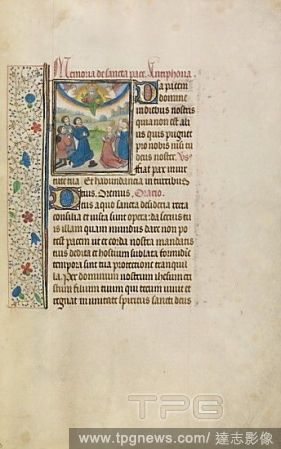 Memoria de sancta pace Antiphona
Da pacem
domine
in diebus nostris
quia non est ali
us qui pugnet
pro nobis nisi tu
deus noster. Vs
fiat pax in vir
tute tua Et habundancia in turribus
tuis, Oremus, Oracio
Deus a quo sancta desideria recta
consilia et iusta sunt opera: da servis tu
is illam quam mundus dare non po
test pacem ut et corda nostra mandatis
tuis dedita et hostium sublata formidi
tempora sint tua protectione tranquil
la. Per dominum nostrum ihesum cri
stum filium tuum qui tecum vivit et
regnat in unitate spiritus sancti deus
TPG
www.tpgnews.com/ 達志影像